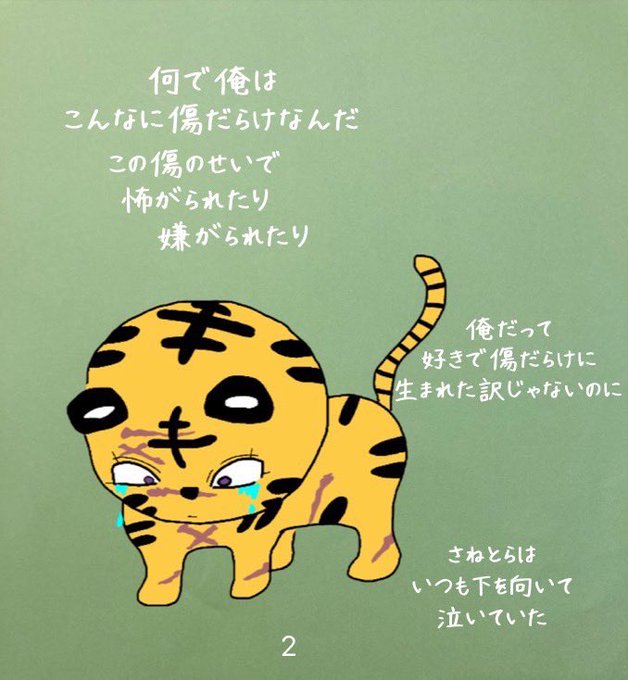 何で俺は
こんなに傷だらけなんだ
この傷のせいで
怖がられたり
嫌がられたり
俺だって
好きで傷だらけに
生まれた訳じゃないのに
さねとらは
いつも下を向いて
泣いていた
2